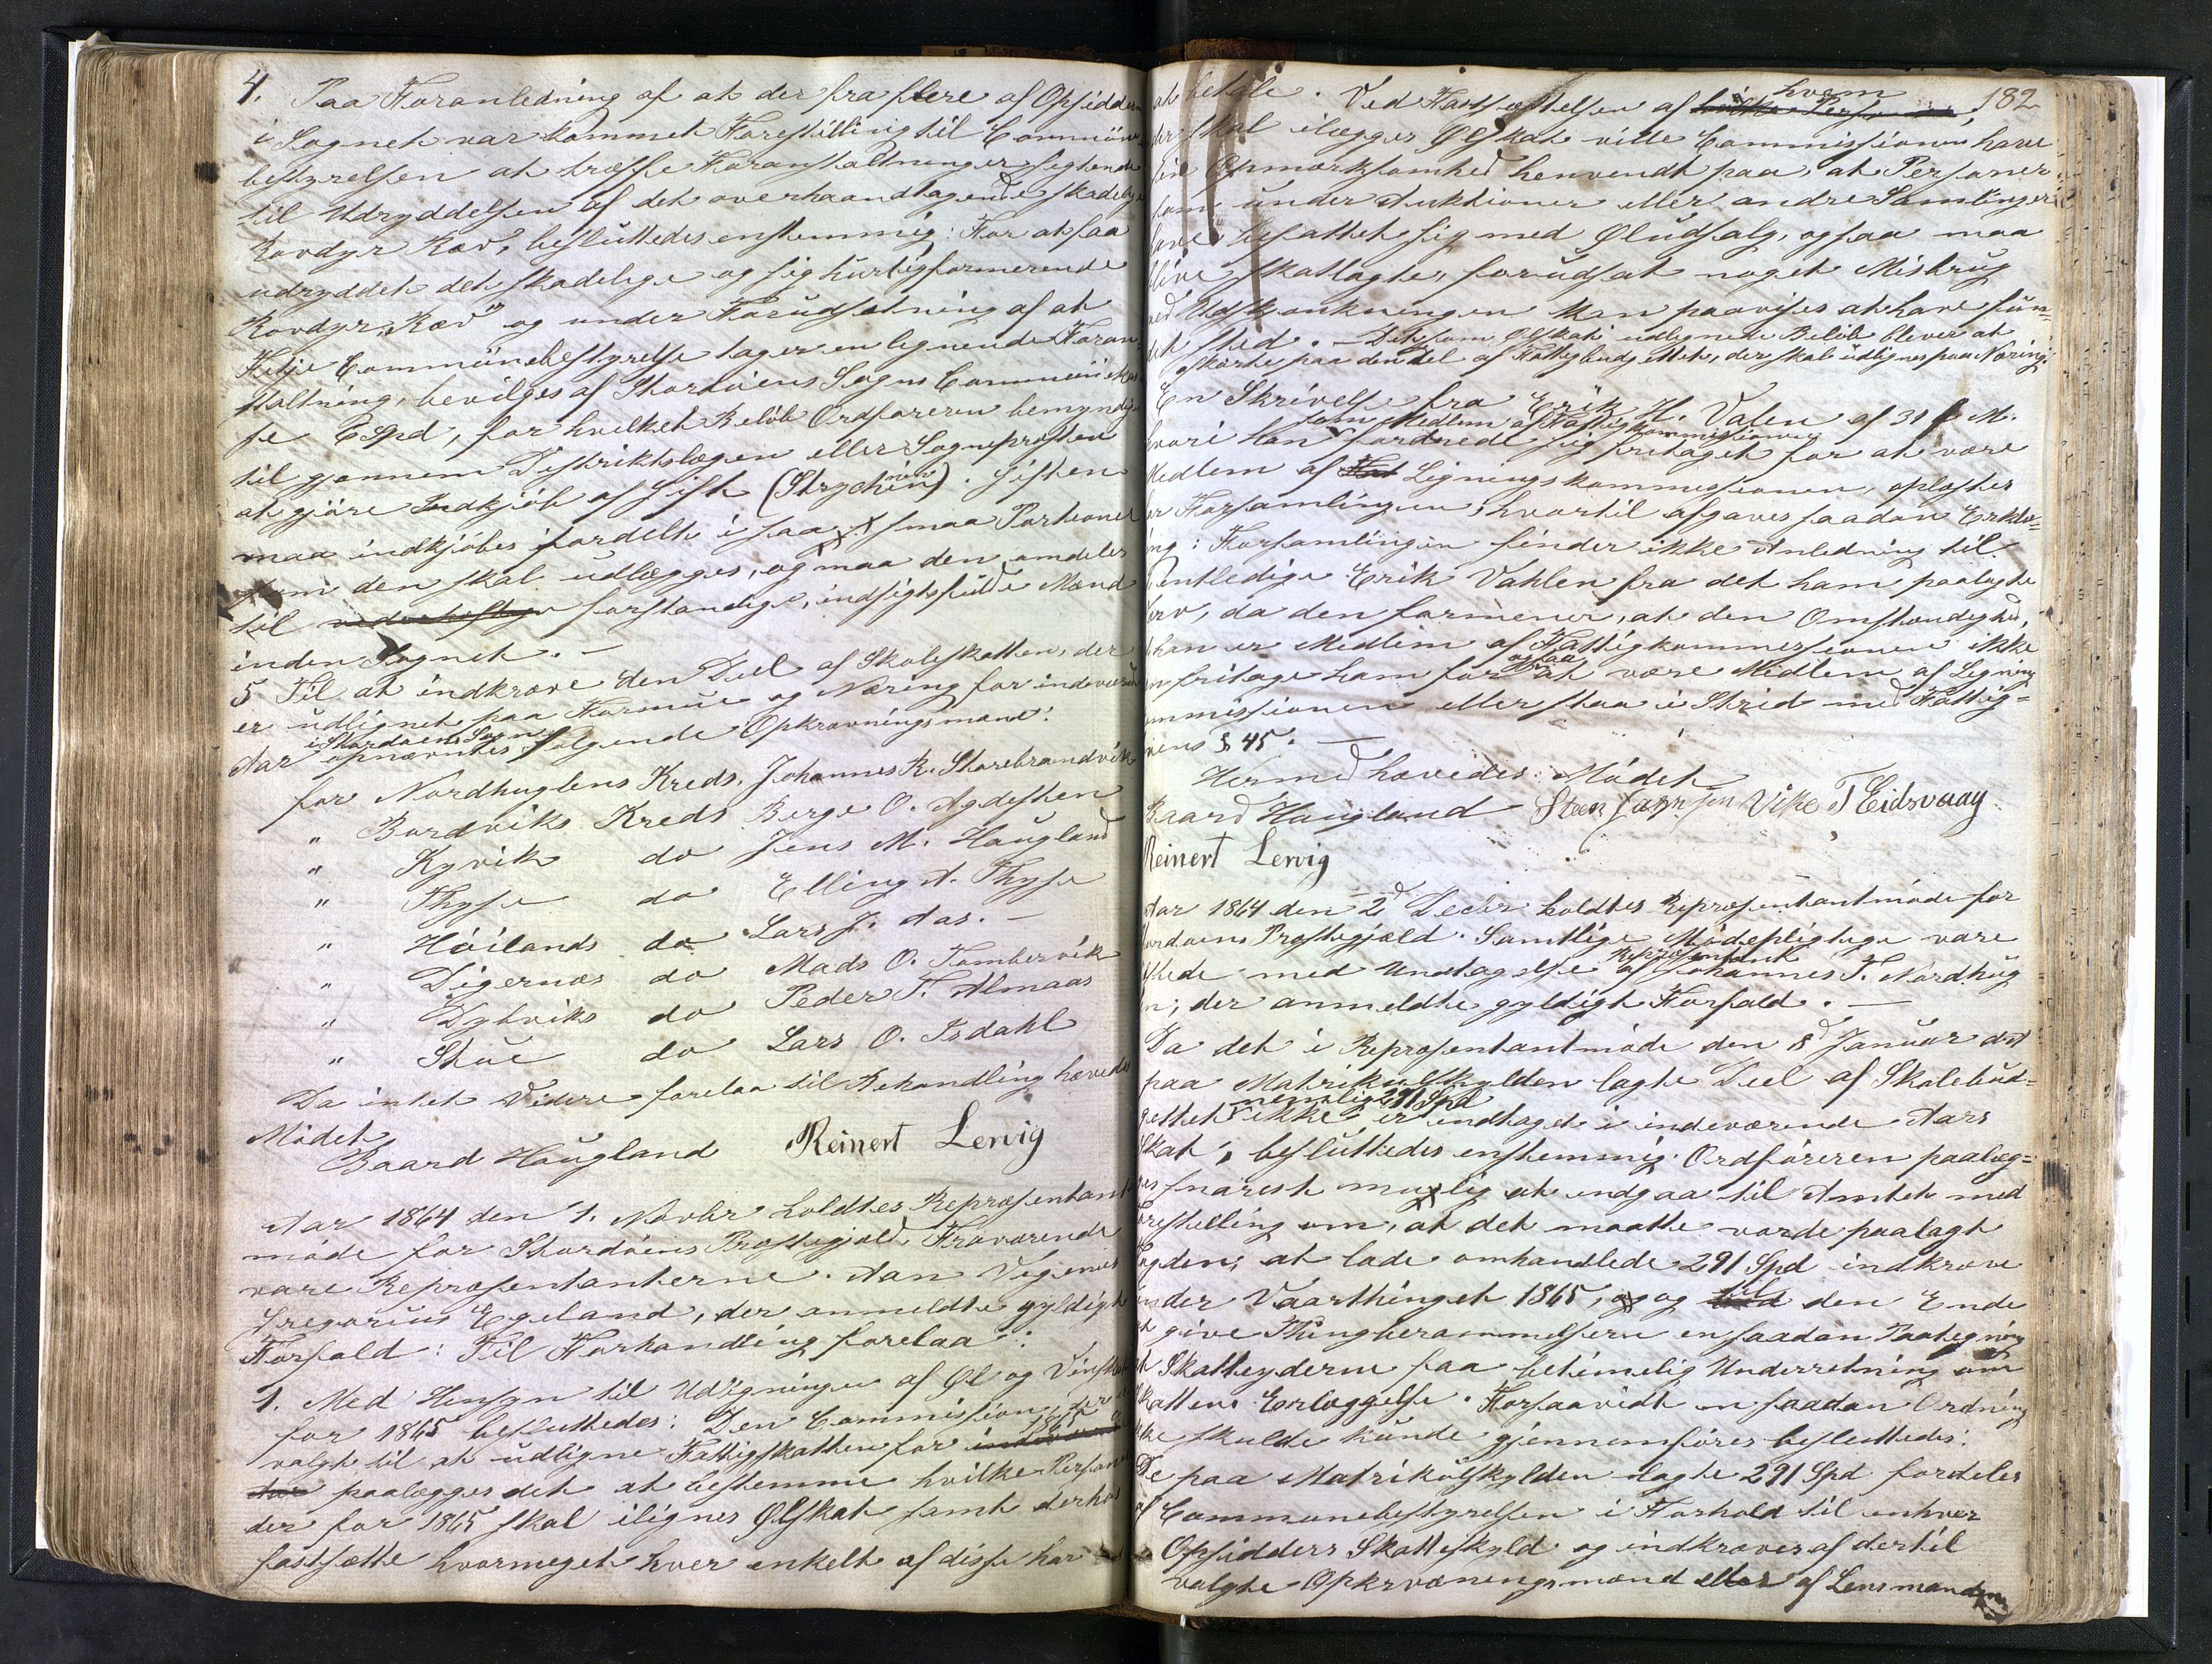 4. Paa Foranledning af at der fra flere af Opsiddere
i Sognet var kommet Forestilling til Commune-
bestyrelsen at træffe Foranstaltninger sigtende
til Udryddelsen af det overhaandtagende skadelige
Rovdyr Ræv, besluttedes enstemmig: For at faa
udryddet det skadelige og sig hurtigformerende
Rovdyr "Ræv" og under Forudsætning af at
Fitje Communebestyrelse tager en lignende Foran-
staltning, bevilges af Stordöens Sogns Communekas-
se 6 Spd, for hvilket Beløb Ordføreren bemyndiges
til gjennem Distriktslægen eller Sogneprosten
at gjøre Indkjöb af Gift (Strychnin). Giften
maa indkjöbes fordelt i saa smaa Portioner
som den skal udlægges, og maa den omdeles
til forstandige, indsigtsfulde Mænd
inden Sognet. —
5 Til at indkræve den Deel af Skoleskatten, der
er udlignet paa Formue og Næring for indeværende
i Stordöens Sogn
Aar opnævntes følgende Opkrævningsmænd:
for Nordhuglens Kreds, Johannes R. Storebrandvik
" Bordviks Kreds Berge O. Agdesten
" Kyvik do Jens M. Haugland
" Thyse do Elling A. Thyse
" Höilands do Lars J. Aas. —
" Digernæs do Mads O. Tombervik
" Dybviks do Peder T. Almaas
" Stue do Lars O. Isdahl
Da intet Videre forelaa til Behandling hævedes
Mödet
Baard Haugland Reinert Lervig
Aar 1864 den 1. Novbr holdtes Repræsentant
möde for Stordöens Præstegjæld. Fraværende
vare Repræsentanterne Aan Vegenes
Gregorius Egeland, der anmeldte gyldigt
Forfald: Til Forhandling forelaa:
1. Med Hensyn til Udligningen af Øl og Vinskat
for 1865 besluttedes: Den Commission, der er
1865
valgt til at udligne Fattigskatten for indeværende
Aar paalægges det at bestemme hvilke Personer
der for 1865 skal ilignes Ølskat samt derhos
fastsætte hvormeget hver enkelt af disse har
182
hvem
at betale. Ved Fastsættelsen af hvilke Personer
der skal ilægges Ølskat ville Commissionen have
sin Opmærksomhed henvendt paa, at Personer
som under Auktioner eller andre Samlinger
have befattet sig med Øludsalg, ogsaa maa
blive skatlagte, forudsat noget Misbrug
ved Udskjænkningen kan paavises at have fun-
det sted. — Det som Ølskat udlignede Beløb bliver at
afkorte paa den Del af Fattigbudgettet, der skal udlignes paa Næring.
En Skrivelse fra Erik H. Valen af 31 f. M.
som Medlem af Fattigkommissionen
hvori han fordrede sig fritaget for at være
Medlem af Fat Ligningskommissionen, oplæstes
for Forsamlingen, hvortil afgaves saadan Erklæ-
ring: Forsamlingen finder ikke Anledning til
entledige Erik Vahlen fra det ham paalagte
Hverv, da den formener, at den Omstændighed,
han er Medlem af Fattigkommissionen ikke
ogsaa
kan fritage ham for at være Medlem af Lignings
kommissionen eller staa i Strid med Fattig-
lovens § 45. —
Hermed hævedes Mödet
Baard Haugland Steen Larssen Vike T Eidsvaag
Reinert Lervig
Aar 1864 den 2d Decbr holdtes Repræsentantmöde for
Stordöens Præstegjæld. Samtlige Mödepligtige vare
Repræsentant
mödte med Undtagelse af Johannes T. Nordhug
len, der anmeldte gyldigt Forfald. —
Da det i Repræsentantmöde den 8d Januar dA
paa Matrikulskylden lagte Deel af Skolebud-
nemlig 291 Spd
gettet ikke er indtaget i indeværende Aars
Skat, besluttedes enstemmig: Ordføreren paalæg-
ges snarest mulig at indgaa til Amtet med
Forestilling om, at det maatte vorde paalagt
Fogden, at lade omhandlede 291 Spd indkræve
til
under Vaarthinget 1865, og den Ende
at give Thingberammelsen en saadan Paategning
at Skatteyderne faa betimelig Underretning om
Skattens Erlæggelse. Forsaavidt en saadan Ordning
ikke skulde kunde gjennemføres besluttedes:
De paa Matrikulskylden lagte 291 Spd fordeles
af Communebestyrelsen i Forhold til enhver
Opsidders Skatteskyld og indkræves af dertil
valgte Opkrævningsmænd eller af Lensmanden